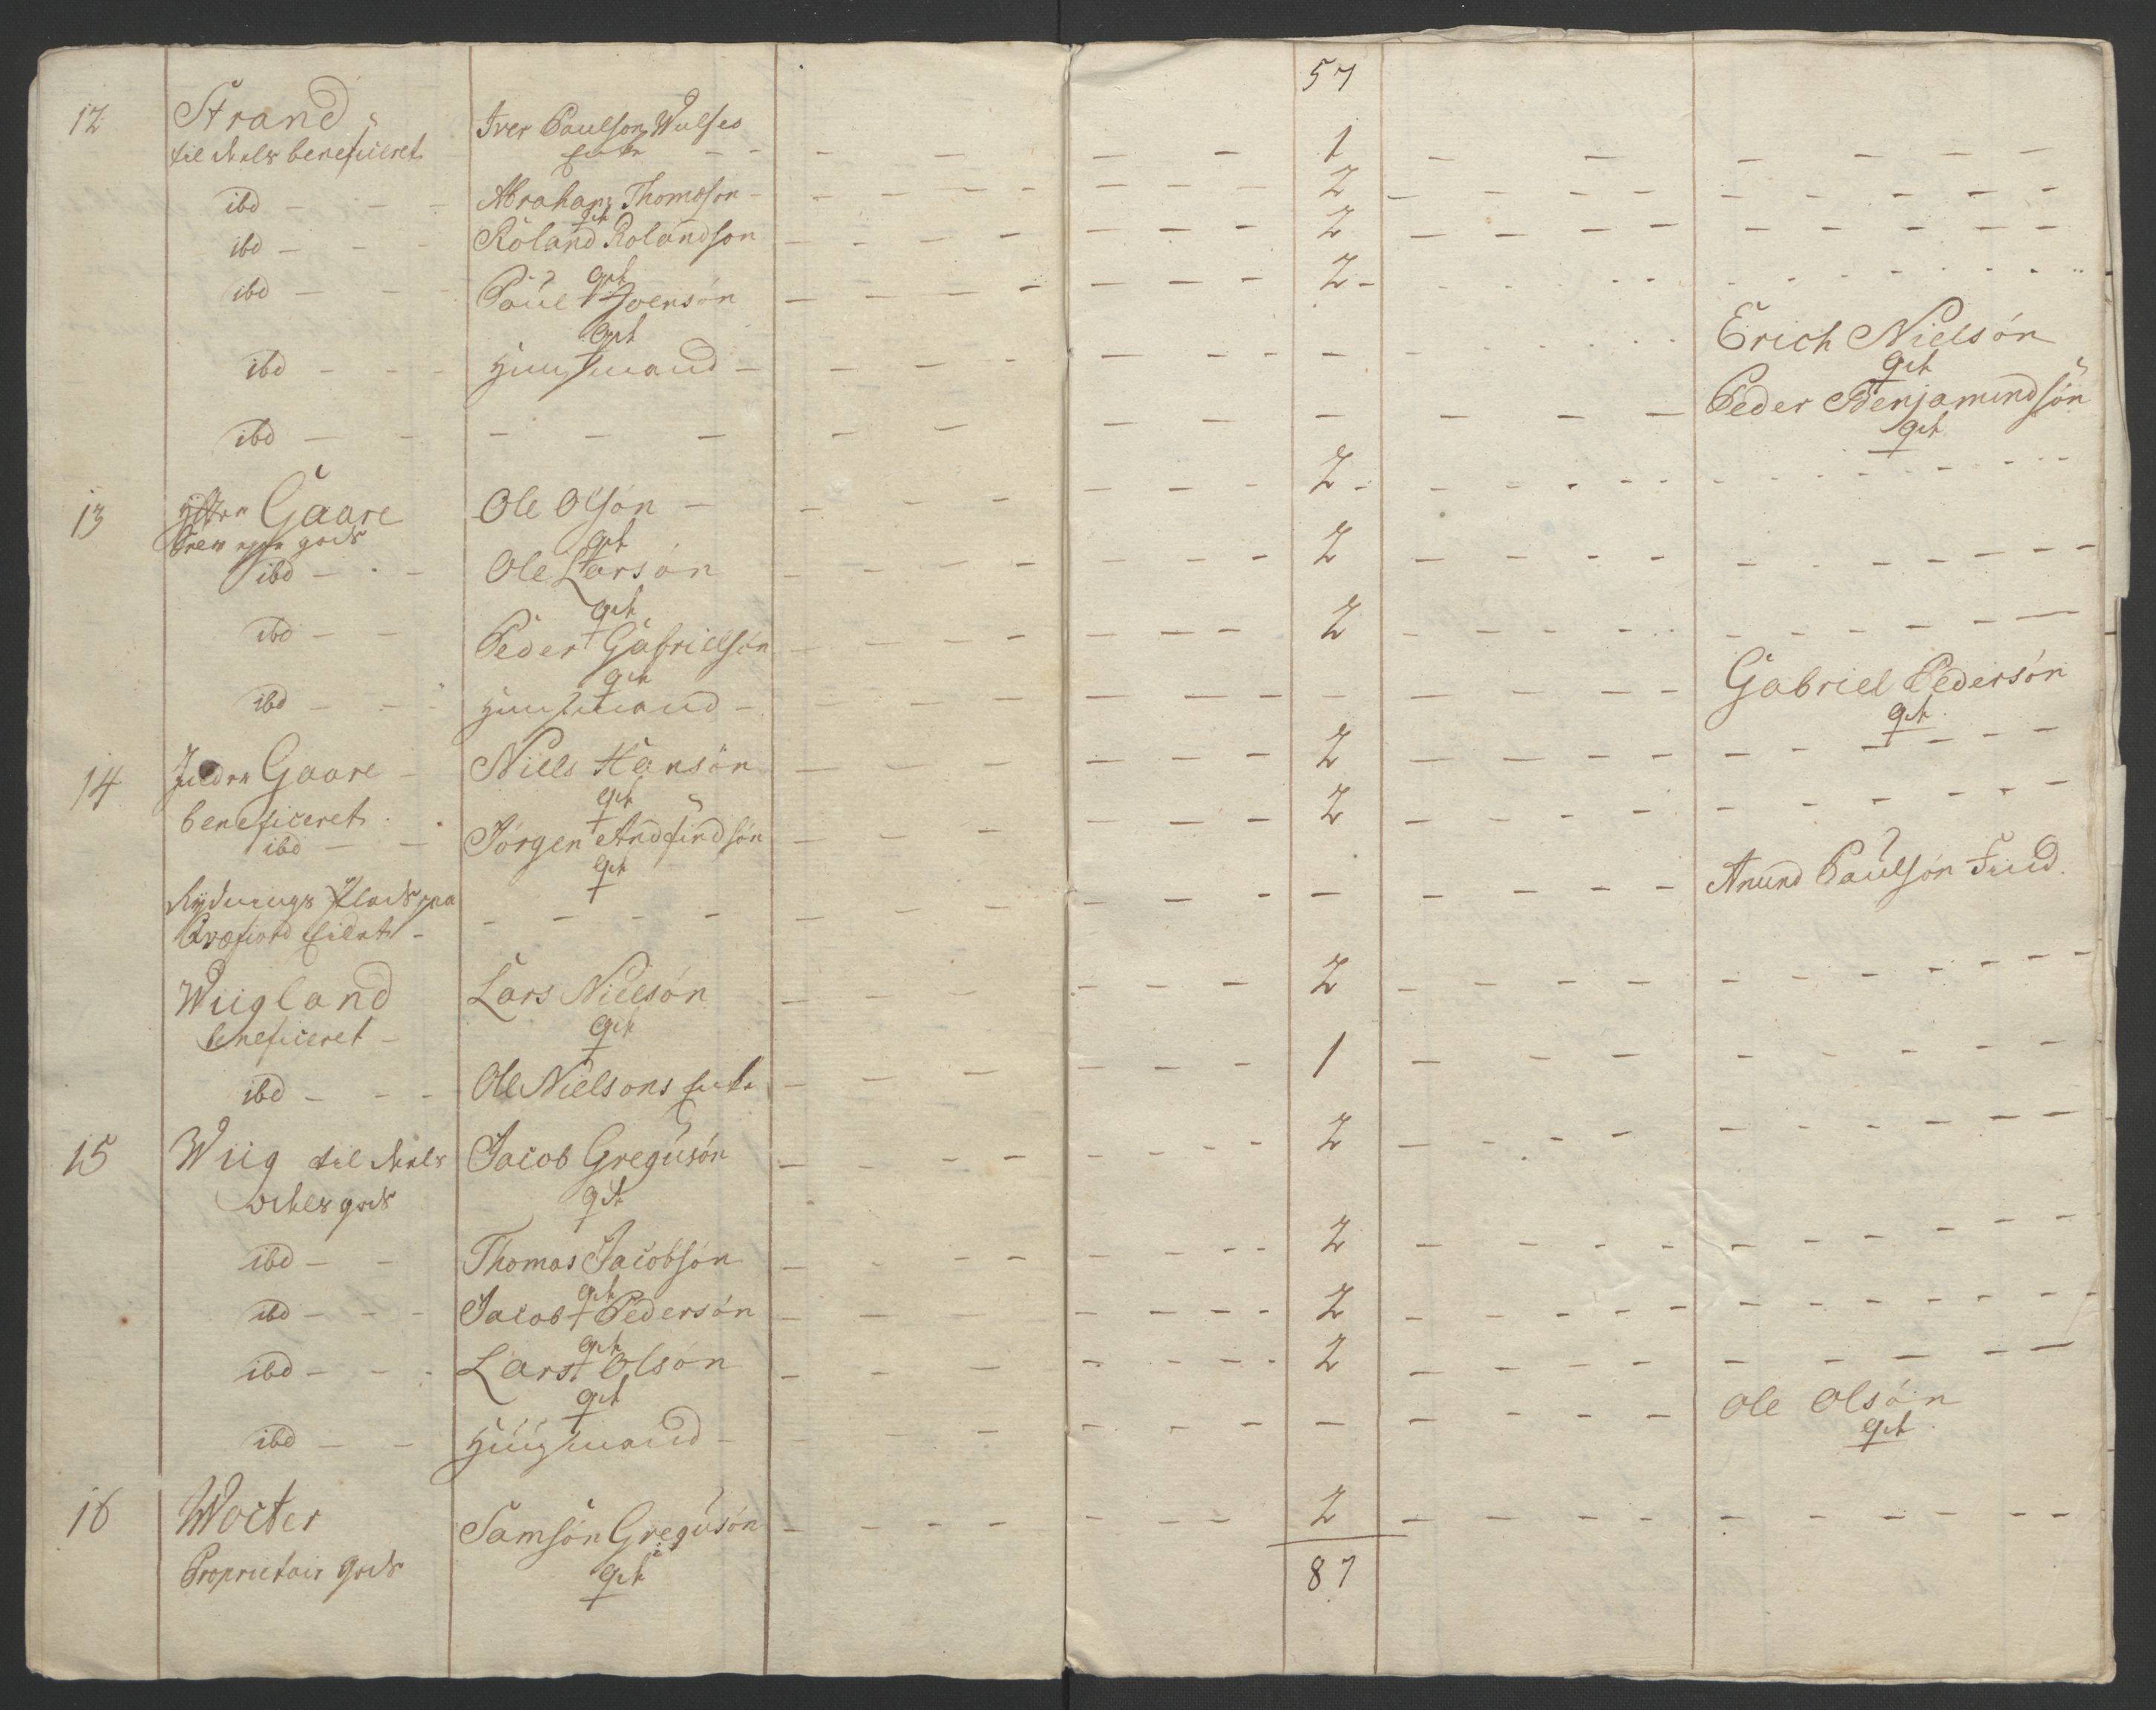 57
12 Strand Iver Paulson Wulfes
til beneficeret Enke - - - - - - 1 - - - - - -
ibd - - - Abraham Thomøson - - - - - - - 2 - - - - - - - -
gift
ibd - - - Roland Rolandson - - - - - - - 2 - - - - - - - -
gift
ibd - - - Paul Joensøn - - - - - - - 2 - - - - - - - -
gift
ibd - - - Huusmand - - - - - - - - - - Erich Nielsøn
gift
ibd - - - - - - - - - - - - - - Peder Benjamindsøn
gift
13 Gaare Ole Olsøn - - - - - - 2 - - - - - - -
gods gift
ibd - - - Ole Larsøn - - - - - - - 2 - - - - - - - -
gift
ibd - - Peder Gabrielsøn - - - - - - 2 - - - - - - -
gift
ibd - - - Huusmand - - - - - - - - - - Gabriel Pedersøn
gift
14 Gaare - Niels Hansøn - - - - - - 2 - - - - - - -
beneficeret gift
ibd - - Jørgen Andfindsøn - - - - - - 2 - - - - - - -
gift
Rydnings Plads paa - - - - - - - - - - - - Anund Paulsøn Fuud
Wiigland Lars Nielsøn - - - - - - 2 - - - - - - -
beneficeret - gift
ibd - - - Ole Nielsøns Enke - - - - - - 1 - - - - - - -
15 Wiig til Jacob Gregusøn - - - - - - 2 - - - - - - -
gods gift
ibd - - Thomas Jacobsøn - - - - - - 2 - - - - - - -
gift
ibd - - - Jacob Pedersøn - - - - - - 2 - - - - - - -
gift
ibd - - - Lars Olsøn - - - - - - 2 - - - - - - -
gift
ibd - - Huusmand - - - - - - - - - - Ole Olsøn
gift
16 Wocter Samsøn Gregusøn - - - - - - 2 - - - - - - -
Proprietair gods gift
87